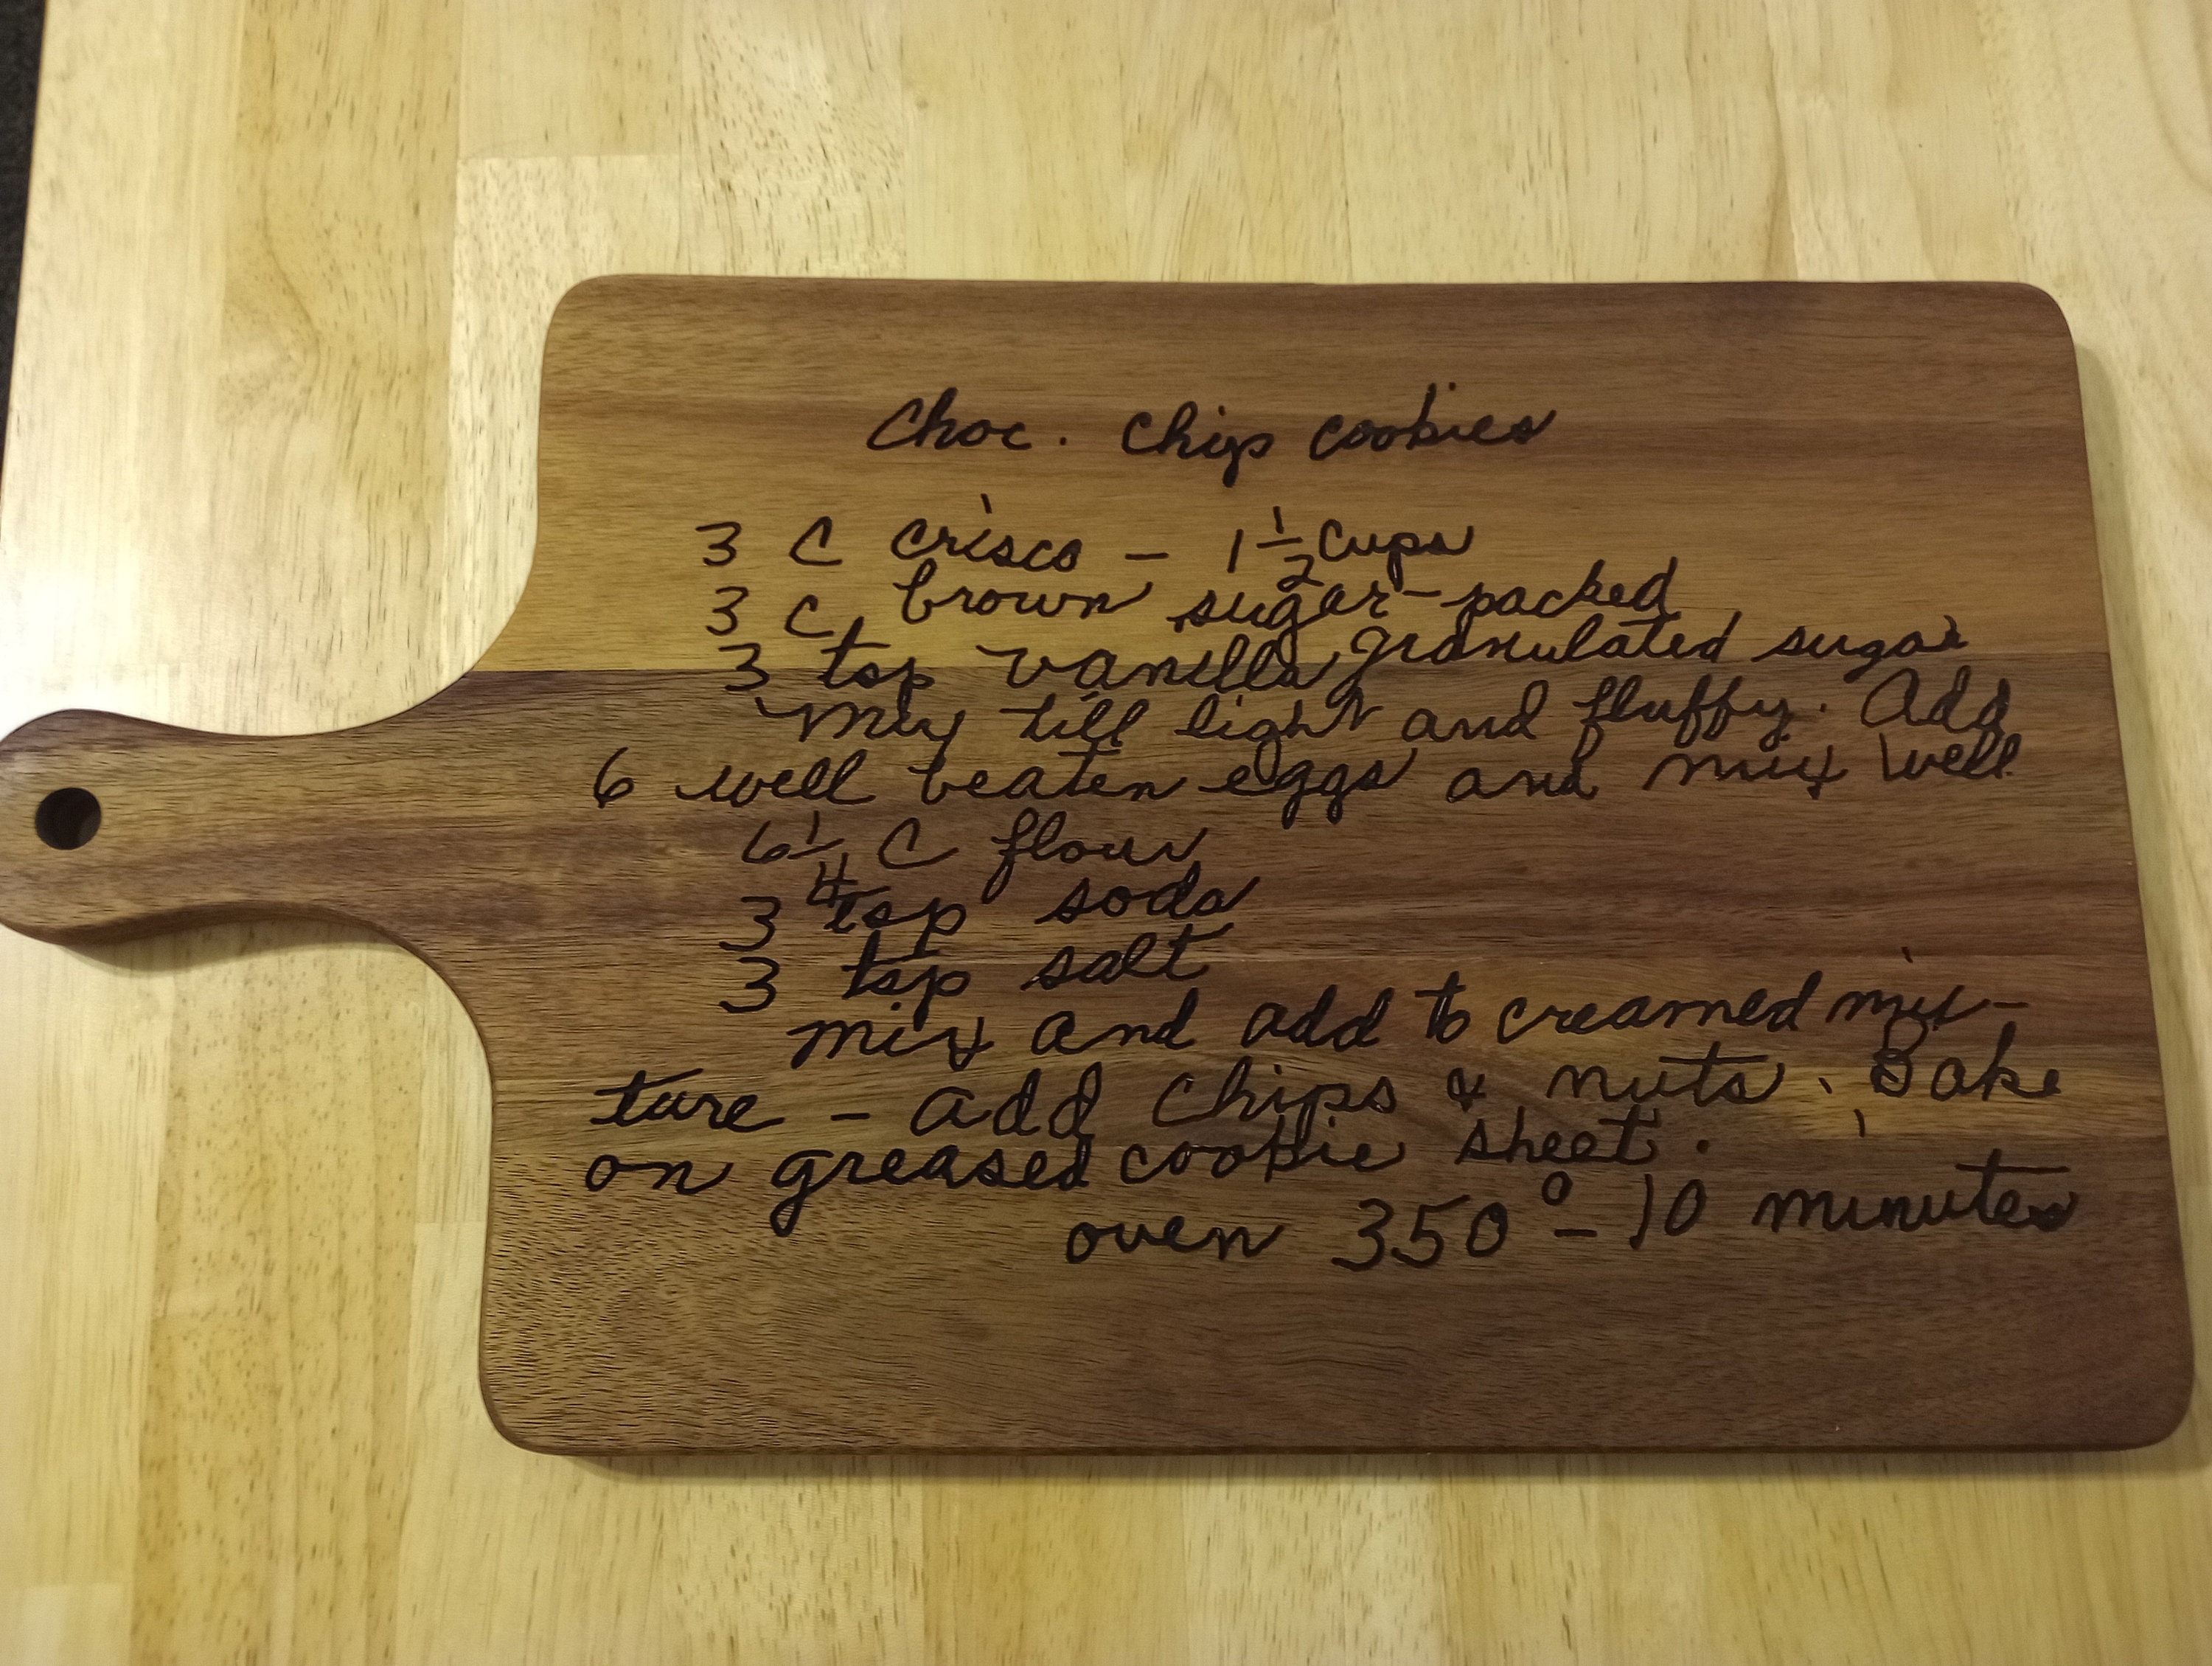 Choc. Chip cookies
3 C crisco - 1 1/2 Cups
3 C brown sugar - packed
3 tsp vanilla, granulated sugar
Mix till light and fluffy. Add
6 well beaten eggs and mix well
6 1/4 C flour
3 tsp soda
3 tsp salt
Mix and add to creamed mix-
ture - add chips & nuts. Bake
on greased cookie sheet.
oven 350° - 10 minutes